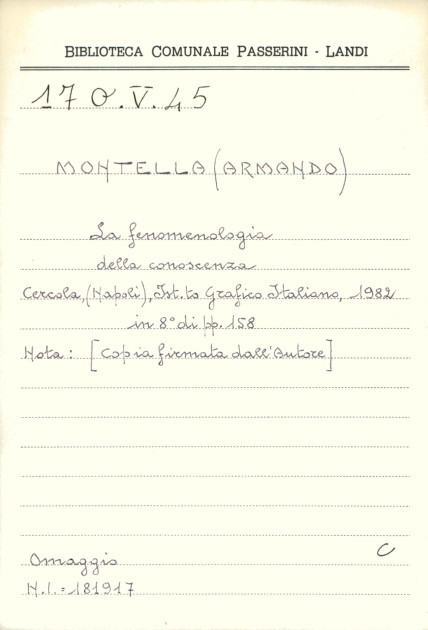 BIBLIOTECA COMUNALE PASSERINI - LANDI
17 O.V.45
MONTELLA (ARMANDO)
La fenomenologia
della conoscenza
Cercola, (Napoli), Ist.to Grafico Italiano, 1982
in 8° di pp. 158
Nota: [Copia firmata dall'Autore]
C
Omaggio
N.I.=181917